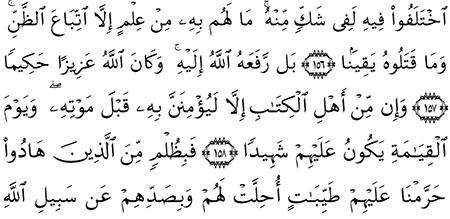 ٱخْتَلَفُوا۟ فِيهِ لَفِى شَكٍّ مِّنْهُ ۚ مَا لَهُم بِهِۦ مِنْ عِلْمٍ إِلَّا ٱتِّبَاعَ ٱلظَّنِّ ۚ
وَمَا قَتَلُوهُ يَقِينًۢا ﴿١٥٦﴾ بَل رَّفَعَهُ ٱللَّهُ إِلَيْهِ ۚ وَكَانَ ٱللَّهُ عَزِيزًا حَكِيمًا
﴿١٥٧﴾ وَإِن مِّنْ أَهْلِ ٱلْكِتَـٰبِ إِلَّا لَيُؤْمِنَنَّ بِهِۦ قَبْلَ مَوْتِهِۦ ۖ وَيَوْمَ
ٱلْقِيَـٰمَةِ يَكُونُ عَلَيْهِمْ شَهِيدًا ﴿١٥٨﴾ فَبِظُلْمٍ مِّنَ ٱلَّذِينَ هَادُوا۟
حَرَّمْنَا عَلَيْهِمْ طَيِّبَـٰتٍ أُحِلَّتْ لَهُمْ وَبِصَدِّهِمْ عَن سَبِيلِ ٱللَّهِ